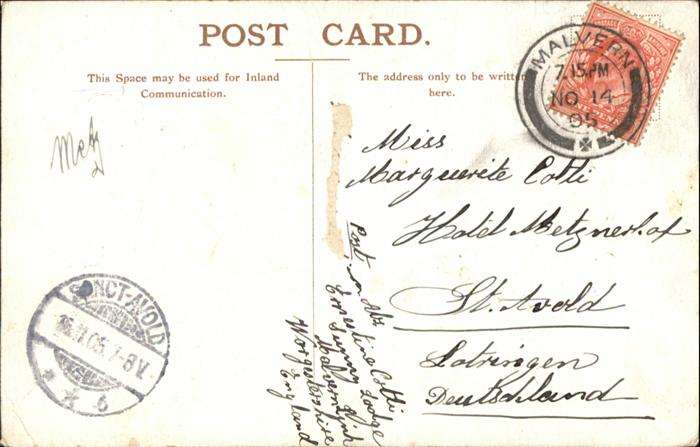 POST CARD.
This Space may be used for Inland
Communication.
The address only to be written
here.
MALVERN
7.15PM
NO 14
05
Metz
Miss
Marguerite Cotti
Hotel Metznerhof
St. Avold
Lotringen
Deutschland
Post
Ernestine Cotti
Sunny Lodge
Malvern Link
Worgestershire
England
SANCT-AVOLD
16.11.05.7-8V.
* * b